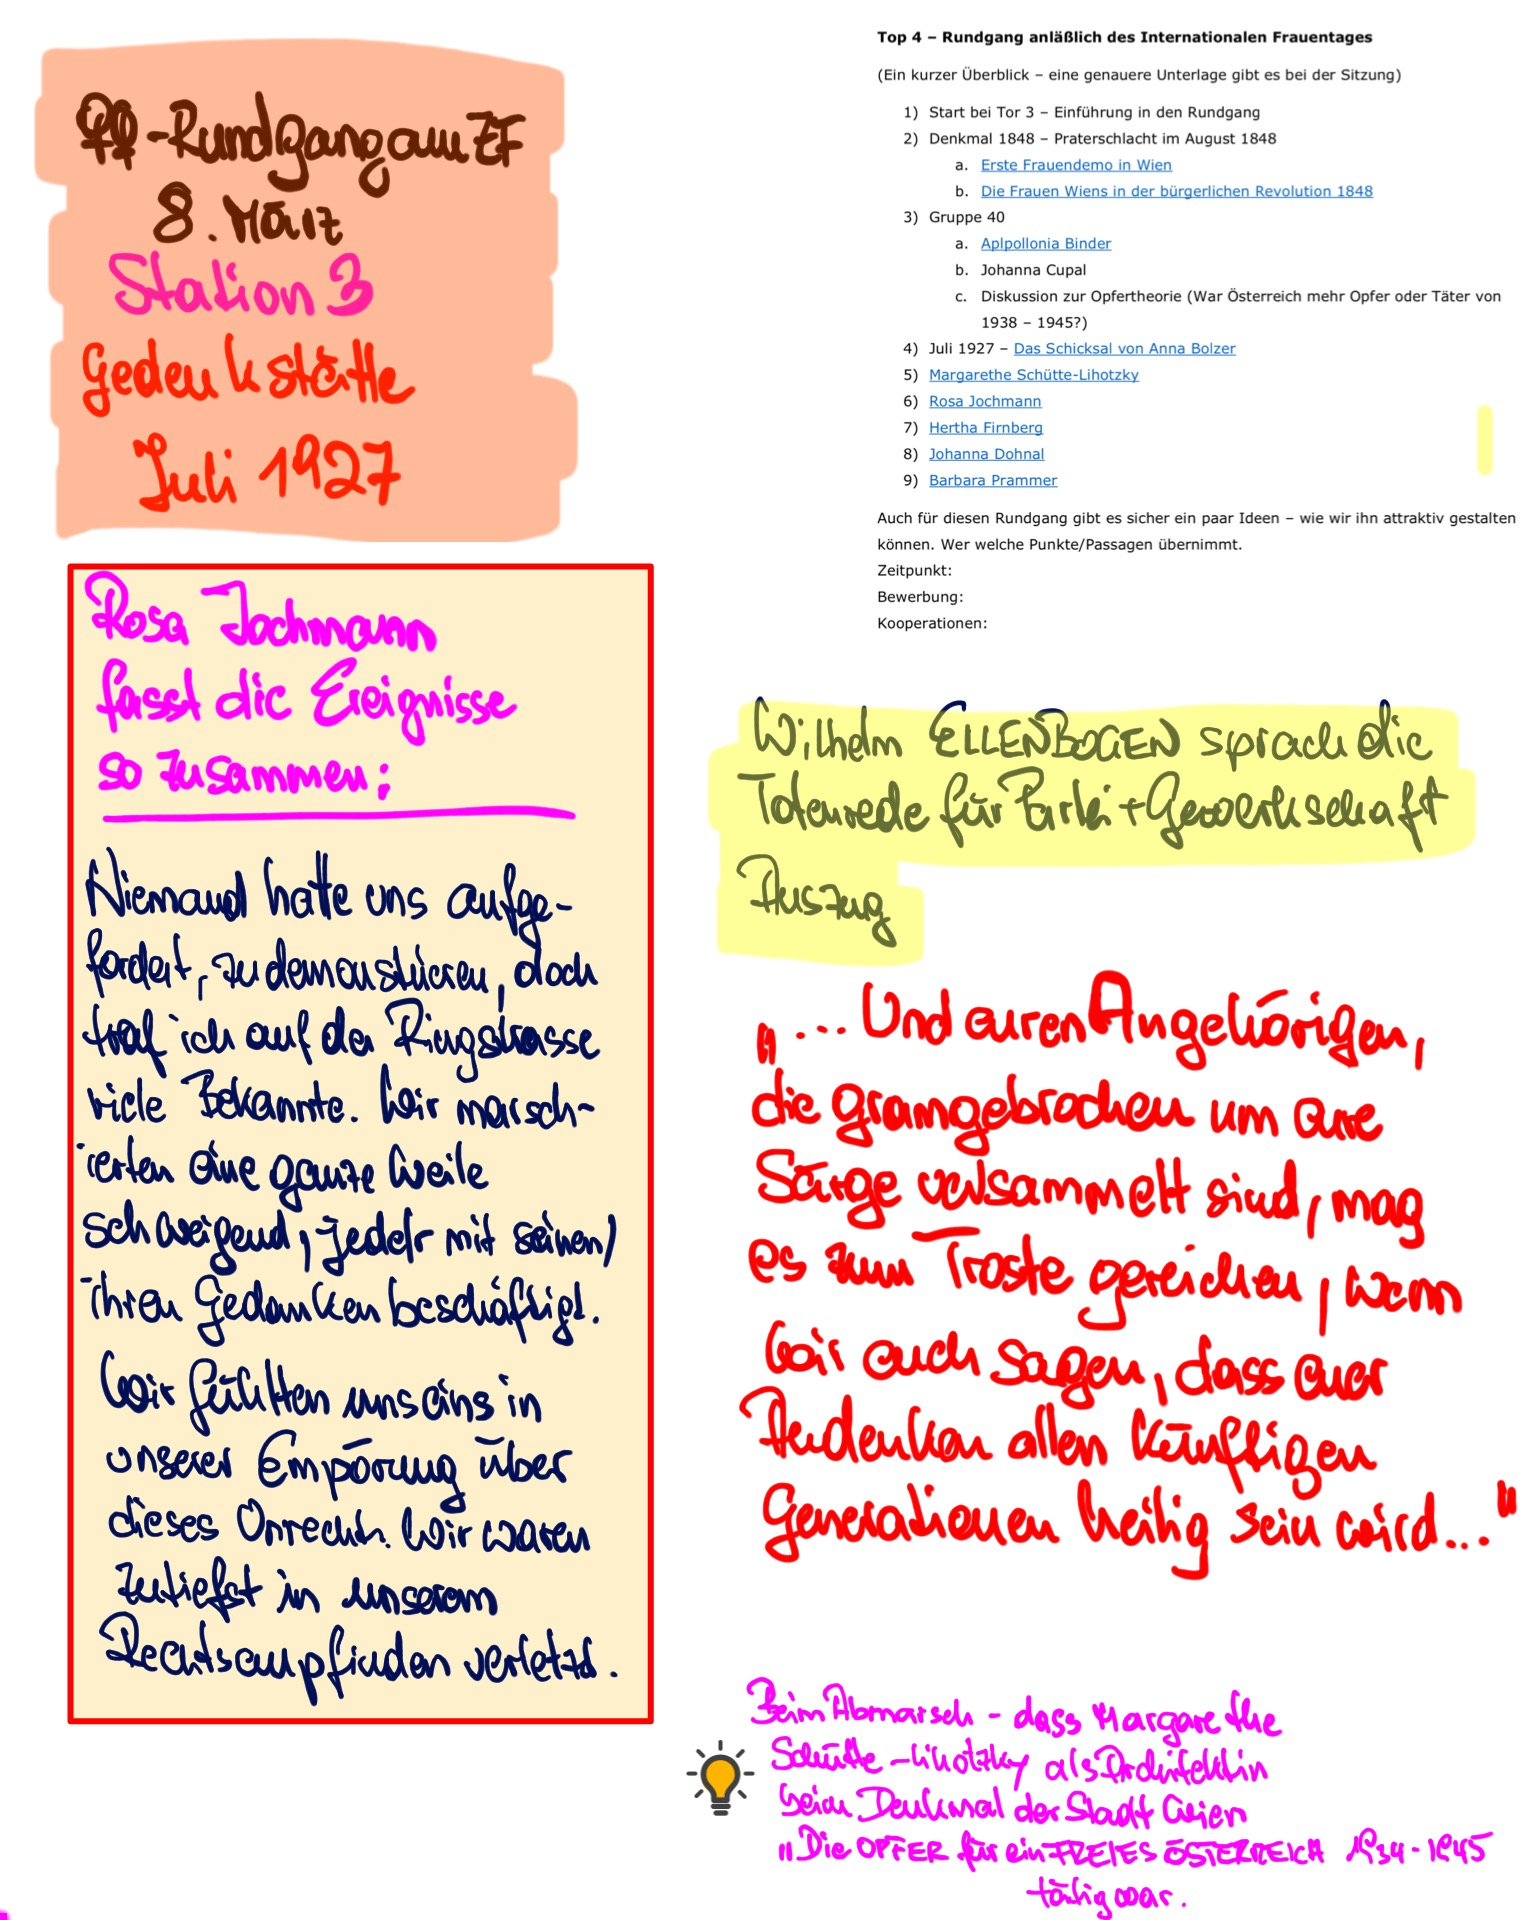 ♀♀-Rundgang am ZF
8. März
Station 3
Gedenkstätte
Juli 1927
Top 4 – Rundgang anläßlich des Internationalen Frauentages
(Ein kurzer Überblick – eine genauere Unterlage gibt es bei der Sitzung)
1) Start bei Tor 3 – Einführung in den Rundgang
2) Denkmal 1848 – Praterschlacht im August 1848
a. Erste Frauendemo in Wien
b. Die Frauen Wiens in der bürgerlichen Revolution 1848
3) Gruppe 40
a. Aplpollonia Binder
b. Johanna Cupal
c. Diskussion zur Opfertheorie (War Österreich mehr Opfer oder Täter von
1938 – 1945?)
4) Juli 1927 – Das Schicksal von Anna Bolzer
5) Margarethe Schütte-Lihotzky
6) Rosa Jochmann
7) Hertha Firnberg
8) Johanna Dohnal
9) Barbara Prammer
Auch für diesen Rundgang gibt es sicher ein paar Ideen – wie wir ihn attraktiv gestalten
können. Wer welche Punkte/Passagen übernimmt.
Zeitpunkt:
Bewerbung:
Kooperationen:
Rosa Jochmann
fasst die Ereignisse
so zusammen:
Niemand hatte uns aufge-
fordert, zu demonstrieren, doch
traf ich auf der Ringstrasse
viele Bekannte. Wir marsch-
ierten eine ganze Weile
schweigend, jede/r mit seinen/
ihren Gedanken beschäftigt.
Wir fühlten uns eins in
unserer Empörung über
dieses Unrecht. Wir waren
zutiefst in unserem
Rechtsempfinden verletzt.
Wilhelm ELLENBOGEN sprach die
Totenrede für Partei + Gewerkschaft
Auszug
„... Und euren Angehörigen,
die gramgebrochen um eure
Särge versammelt sind, mag
es zum Troste gereichen, wenn
wir euch sagen, dass euer
Andenken allen künftigen
Generationen heilig sein wird..."
Beim Abmarsch - dass Margarethe
Schütte-Lihotzky als Architektin
beim Denkmal der Stadt Wien
"Die OPFER für ein FREIES ÖSTERREICH 1934-1945
tätig war.